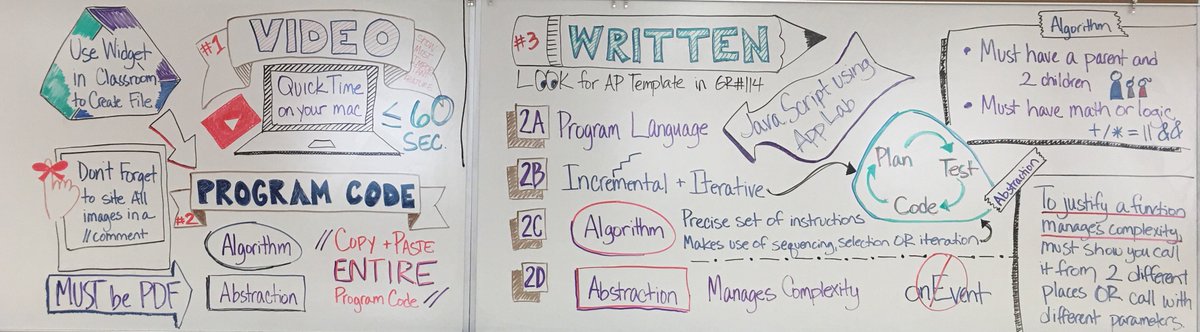 Use Widget
in Classroom
to Create File
#1
VIDEO
QuickTime
on your mac
≤ 60
SEC.
Don't Forget
to site All
images in a
//comment
MUST be PDF
#2
PROGRAM CODE
Algorithm
Abstraction
// COPY + PASTE
ENTIRE
Program Code //
#3
WRITTEN
LOOK for AP Template in GR#114
JavaScript using
App Lab
2A
Program Language
2B
Incremental + Iterative
2C
Algorithm
Precise set of instructions
Makes use of sequencing, selection OR iteration
2D
Abstraction
Manages Complexity
onEvent
Plan
Test
Code
Algorithm
• Must have a parent and
2 children
• Must have math or logic
+ / * = || &&
Abstraction
To justify a function
manages complexity,
must show you call
it from 2 different
places OR call with
different parameters